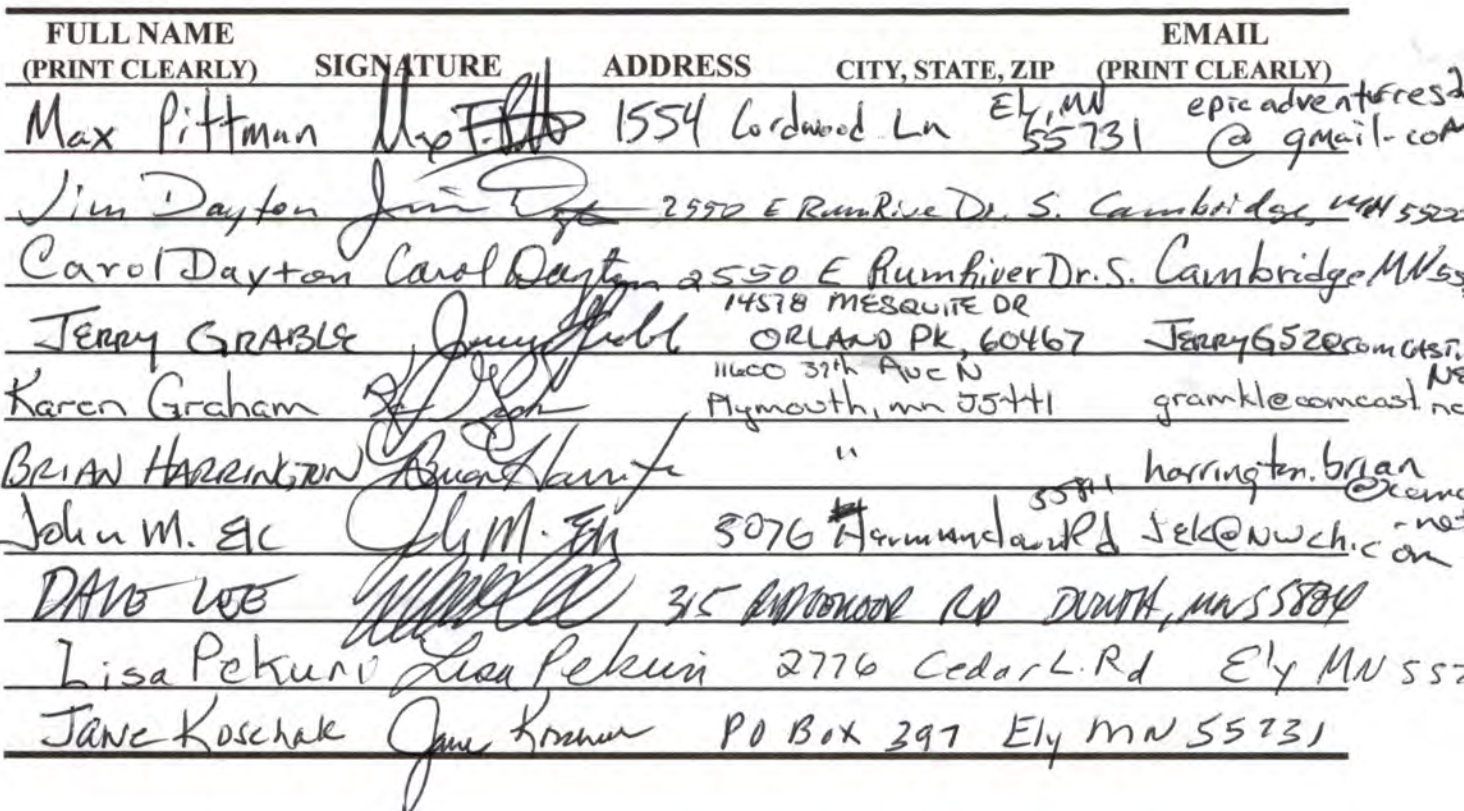 FULL NAME
(PRINT CLEARLY) SIGNATURE ADDRESS CITY, STATE, ZIP EMAIL (PRINT CLEARLY)
Max Pittman 1554 Cordwood Ln Ely, MN 55731 epicadventures @ gmail.com
Jim Dayton Jim 2550 E Rum Rive Dr. S. Cambridge, MN
Carol Dayton Carol Dayton 2550 E Rum River Dr. S. Cambridge MN
JERRY GRABLE 14578 MESQUITE DR ORLAND PK, 60467 JERRYG52@comcast.
Karen Graham 11600 37th Ave N Plymouth, mn 55441 gramkl@comcast
BRIAN HARRINGTON " harrington.brian
John M. 5076 Rd
DAVE LEE 315 RD DULUTH, MN
Lisa Pekuri Lisa Pekuri 2776 Cedar L. Rd Ely MN
Jane Koschak Jane PO Box 397 Ely MN 55731